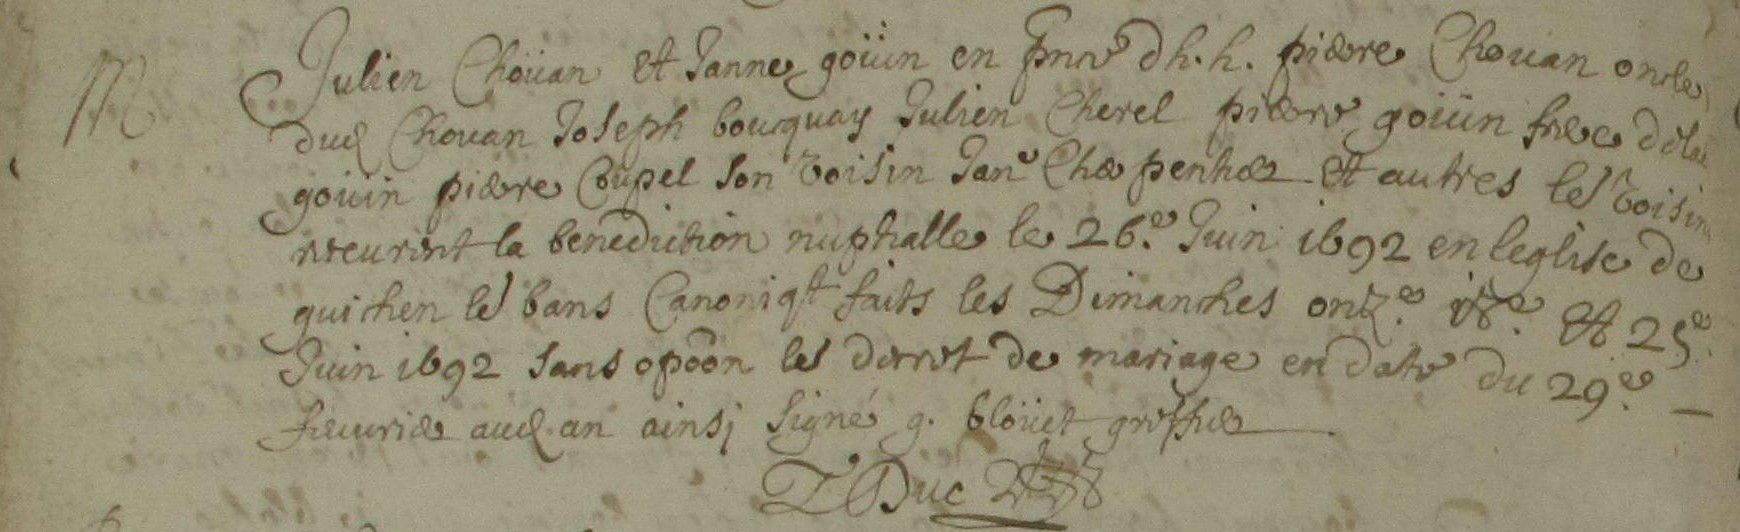 M
Julien Choüan et Janne goüin en pnce dh. h. pierre Chouan oncle
dud Chouan Joseph bourquay Julien Cherel pierre goüin frere de la
gouin pierre Coupel son voisin Jan Charpentier et autres les voisins
receurent la benediction nuptialle le 26.e Juin 1692 en leglise de
guichen les bans Canoniqt faits les Dimanches onz.e et 25.e
Juin 1692 sans opoõn les decret de mariage en date du 29.e
feuurier aud. an ainsj signé g. bloüet greffier
Duc